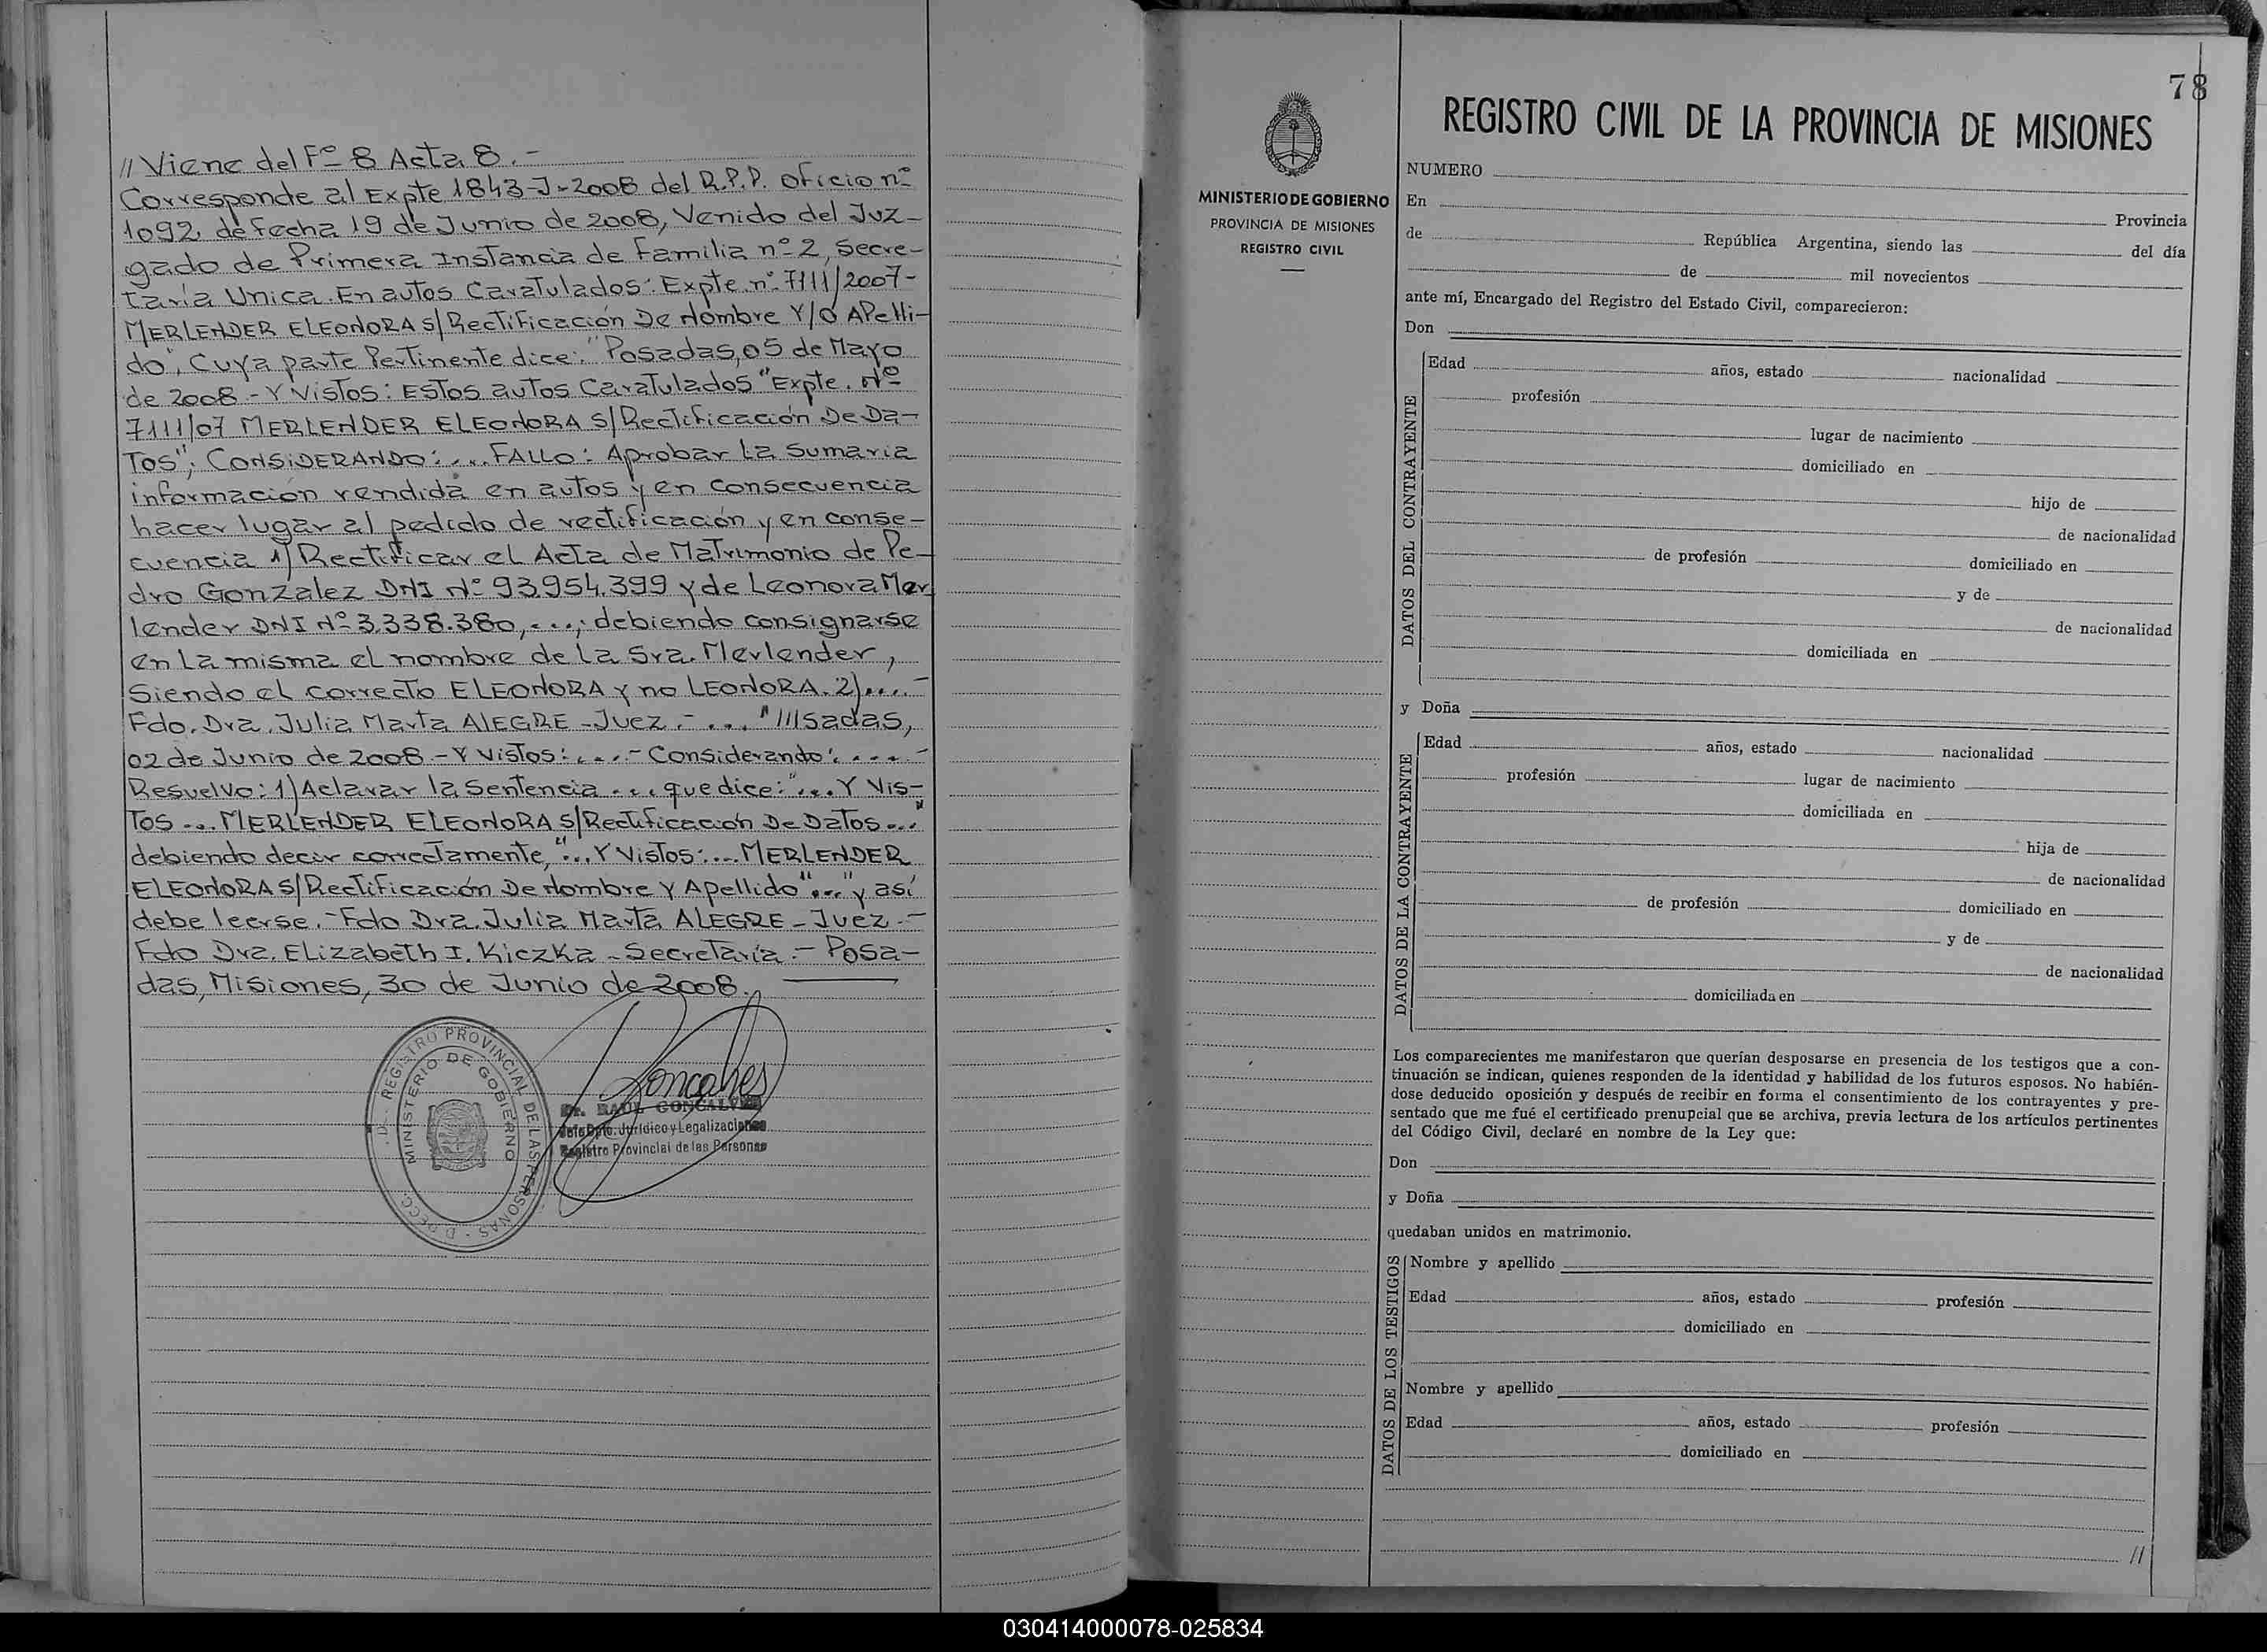 // Viene del Fº 8 Acta 8.-
Corresponde al Expte 1843-J-2008 del R.P.P. oficio nº
1092 de fecha 19 de Junio de 2008, Venido del Juz-
gado de Primera Instancia de Familia nº 2, Secre-
taría Unica. En autos Caratulados: Expte nº 7111/2007-
MERLENDER ELEONORA S/Rectificación De Nombre Y/O APelli-
do", Cuya parte Pertinente dice: "Posadas, 05 de Mayo
de 2008.- Y Vistos: Estos autos Caratulados "Expte. Nº
7111/07 MERLENDER ELEONORA S/Rectificación De Da-
Tos"; CONSIDERANDO: ... FALLO: Aprobar La Sumaria
información rendida en autos y en consecuencia
hacer lugar al pedido de rectificación y en conse-
cuencia 1) Rectificar el Acta de Matrimonio de Pe-
dro Gonzalez DNI Nº 93.954.399 y de Leonora Mer
lender DNI Nº 3.338.380, ...; debiendo consignarse
en La misma el nombre de la Sra. Merlender,
Siendo el correcto ELEONORA y no LEONORA. 2)....-
Fdo. Dra. Julia Marta ALEGRE - Juez.- ... "///sadas,
02 de Junio de 2008.- Y Vistos: ....- Considerando: ....-
Resuelvo: 1) Aclarar la Sentencia ... que dice: "... Y Vis-
Tos ... MERLENDER ELEONORA S/Rectificación De Datos..."
debiendo decir correctamente, "... Y Vistos: ... MERLENDER
ELEONORA S/Rectificación De Nombre Y Apellido"..." y así
debe leerse.- Fdo Dra. Julia Marta ALEGRE - Juez.-
Fdo Dra. Elizabeth I. Kiczka - Secretaria.- Posa-
das, Misiones, 30 de Junio de 2008.
REGISTRO PROVINCIAL DE LAS PERSONAS
MINISTERIO DE GOBIERNO
Dr. RAUL GONCALVES
Jefe Dpto. Jurídico y Legalizaciones
Registro Provincial de las Personas
78
MINISTERIO DE GOBIERNO
PROVINCIA DE MISIONES
REGISTRO CIVIL
REGISTRO CIVIL DE LA PROVINCIA DE MISIONES
NUMERO
En Provincia
de República Argentina, siendo las del día
de mil novecientos
ante mí, Encargado del Registro del Estado Civil, comparecieron:
Don
DATOS DEL CONTRAYENTE
Edad años, estado nacionalidad
profesión
lugar de nacimiento
domiciliado en
hijo de
de nacionalidad
de profesión domiciliado en
y de
de nacionalidad
domiciliada en
y Doña
DATOS DE LA CONTRAYENTE
Edad años, estado nacionalidad
profesión lugar de nacimiento
domiciliada en
hija de
de nacionalidad
de profesión domiciliado en
y de
de nacionalidad
domiciliada en
Los comparecientes me manifestaron que querían desposarse en presencia de los testigos que a con-
tinuación se indican, quienes responden de la identidad y habilidad de los futuros esposos. No habién-
dose deducido oposición y después de recibir en forma el consentimiento de los contrayentes y pre-
sentado que me fué el certificado prenupcial que se archiva, previa lectura de los artículos pertinentes
del Código Civil, declaré en nombre de la Ley que:
Don
y Doña
quedaban unidos en matrimonio.
DATOS DE LOS TESTIGOS
Nombre y apellido
Edad años, estado profesión
domiciliado en
Nombre y apellido
Edad años, estado profesión
domiciliado en
//
030414000078-025834